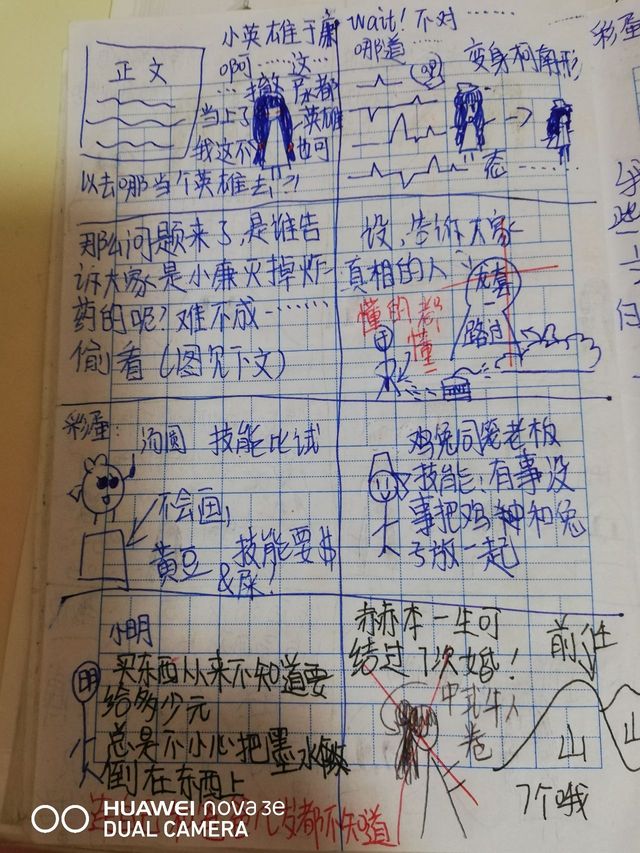 正文
小英雄于廉
啊……这…
当上了
英雄
我这不
也可
以去哪当个英雄去!?
wait!不对
哪道
变身柯南形
态……
彩蛋
那么问题来了,是谁告
诉大家是小廉灭掉炸
药的呢?难不成………
偷看(图见下文)
没,告诉大家
真相的人
懂的都
懂
路过
彩蛋:
汤圆 技能比试
不会画,
黄豆
技能耍$
&屎!
鸡兔同笼老板
技能:有事没
事把鸡 和兔
放一起
小明
明
买东西从来不知道要
给多少元
总是不小心把墨水
倒在东西上
都不知道
赫赫本一生可
结过7次婚!
中
卷
前任
山
山
7个哦
HUAWEI nova 3e
DUAL CAMERA